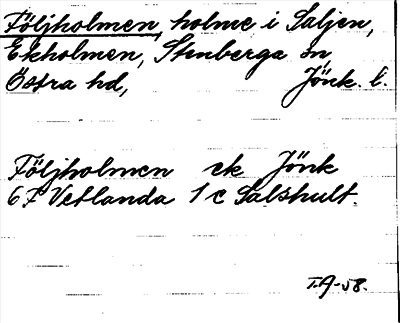 Följholmen, holme i Saljen,
Ekholmen, Stenberga sn,
Östra hd, Jönk. l.
Följholmen ek Jönk
6 F Vetlanda 1 c Salshult.
T.A-58.